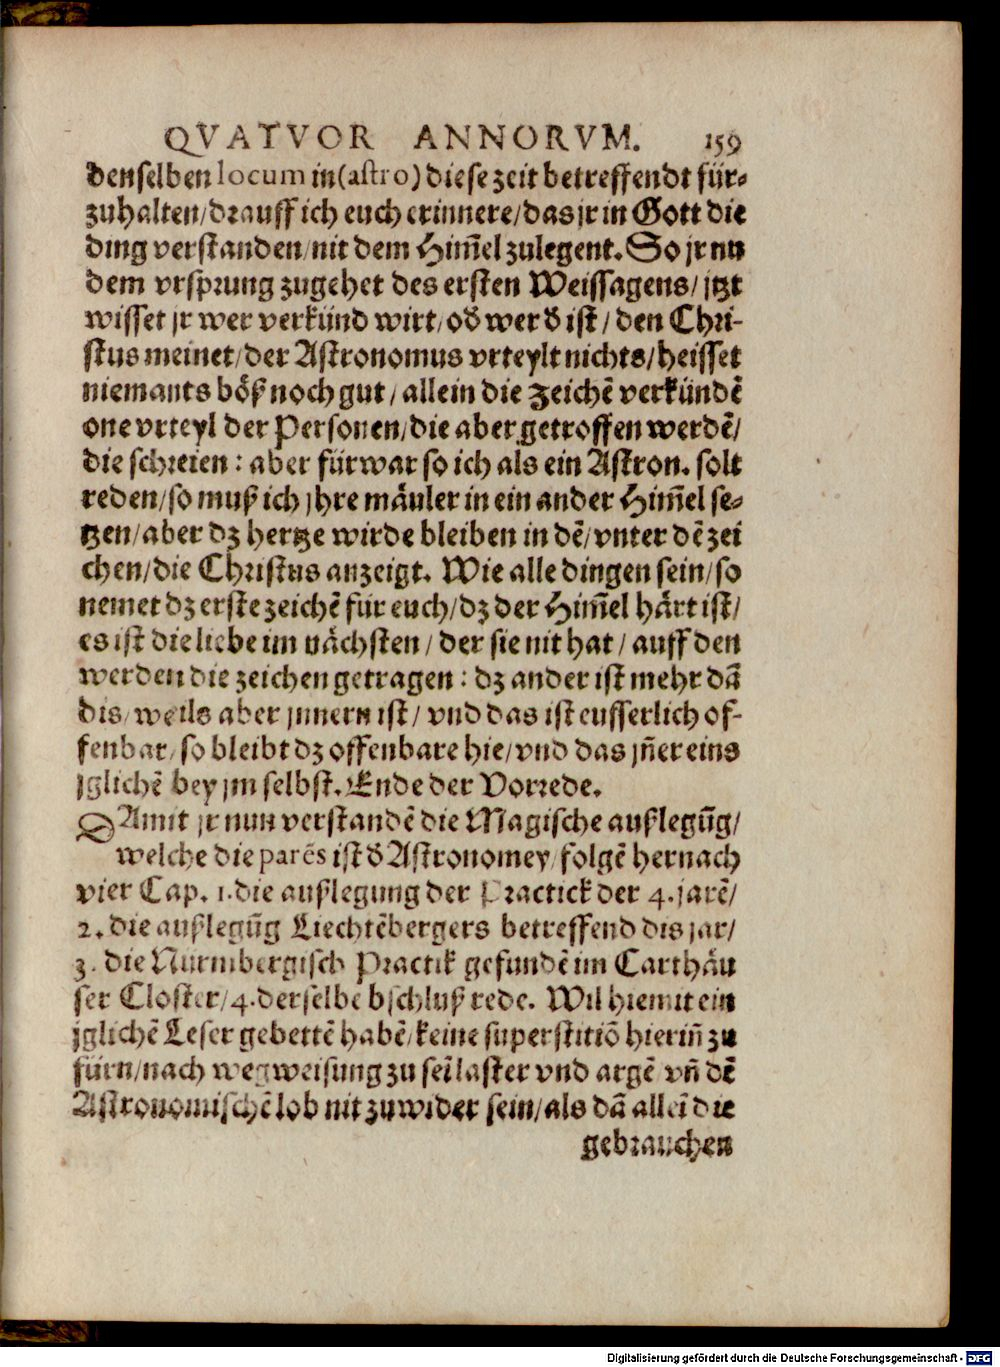 QVATVOR ANNORVM. 159
denselben locum in (astro) diese zeit betreffendt für-
zuhalten/ drauff ich euch erinnere/ das jr in Gott die
ding verstanden/ nit dem Him̃el zulegent. So jr nu
dem vrsprung zugehet des ersten Weissagens/ jtzt
wisset jr wer verkünd wirt/ ob wer d ist/ den Chri-
stus meinet/ der Astronomus vrteylt nichts/ heisset
niemants böß noch gut/ allein die Zeichẽ verkündẽ
one vrteyl der Personen/ die aber getroffen werdẽ/
die schreien: aber fürwar so ich als ein Astron. solt
reden/ so muß ich jhre mäuler in ein ander Him̃el se-
tzen/ aber dz hertze wirde bleiben in dẽ/ vnter dẽ zei
chen/ die Christus anzeigt. Wie alle dingen sein/ so
nemet dz erste zeichẽ für euch/ dz der Him̃el härt ist/
es ist die liebe im nächsten/ der sie nit hat/ auff den
werden die zeichen getragen: dz ander ist mehr dã
dis/ weils aber jnnern ist/ vnd das ist eusserlich of-
fenbar/ so bleibt dz offenbare hie/ vnd das jñer eins
jglichẽ bey jm selbst. Ende der Vorrede.
DAmit jr nun verstandẽ die Magische außlegũg/
welche die parẽs ist d Astronomey/ folgẽ hernach
vier Cap. 1. die außlegung der Practick der 4. jarẽ/
2. die außlegũg Liechtẽbergers betreffend dis jar/
3. die Nürmbergisch Practik gefundẽ im Carthäu
ser Closter/ 4. derselbe bschluß rede. Wil hiemit ein
jglichẽ Leser gebettẽ habẽ/ keine superstitiõ hieriñ zu
fürn/ nach wegweisung zu seĩ laster vnd argẽ vñ dẽ
Astronomischẽ lob nit zuwider sein/ als dã alleĩ die
gebrauchen
Digitalisierung gefördert durch die Deutsche Forschungsgemeinschaft - DFG